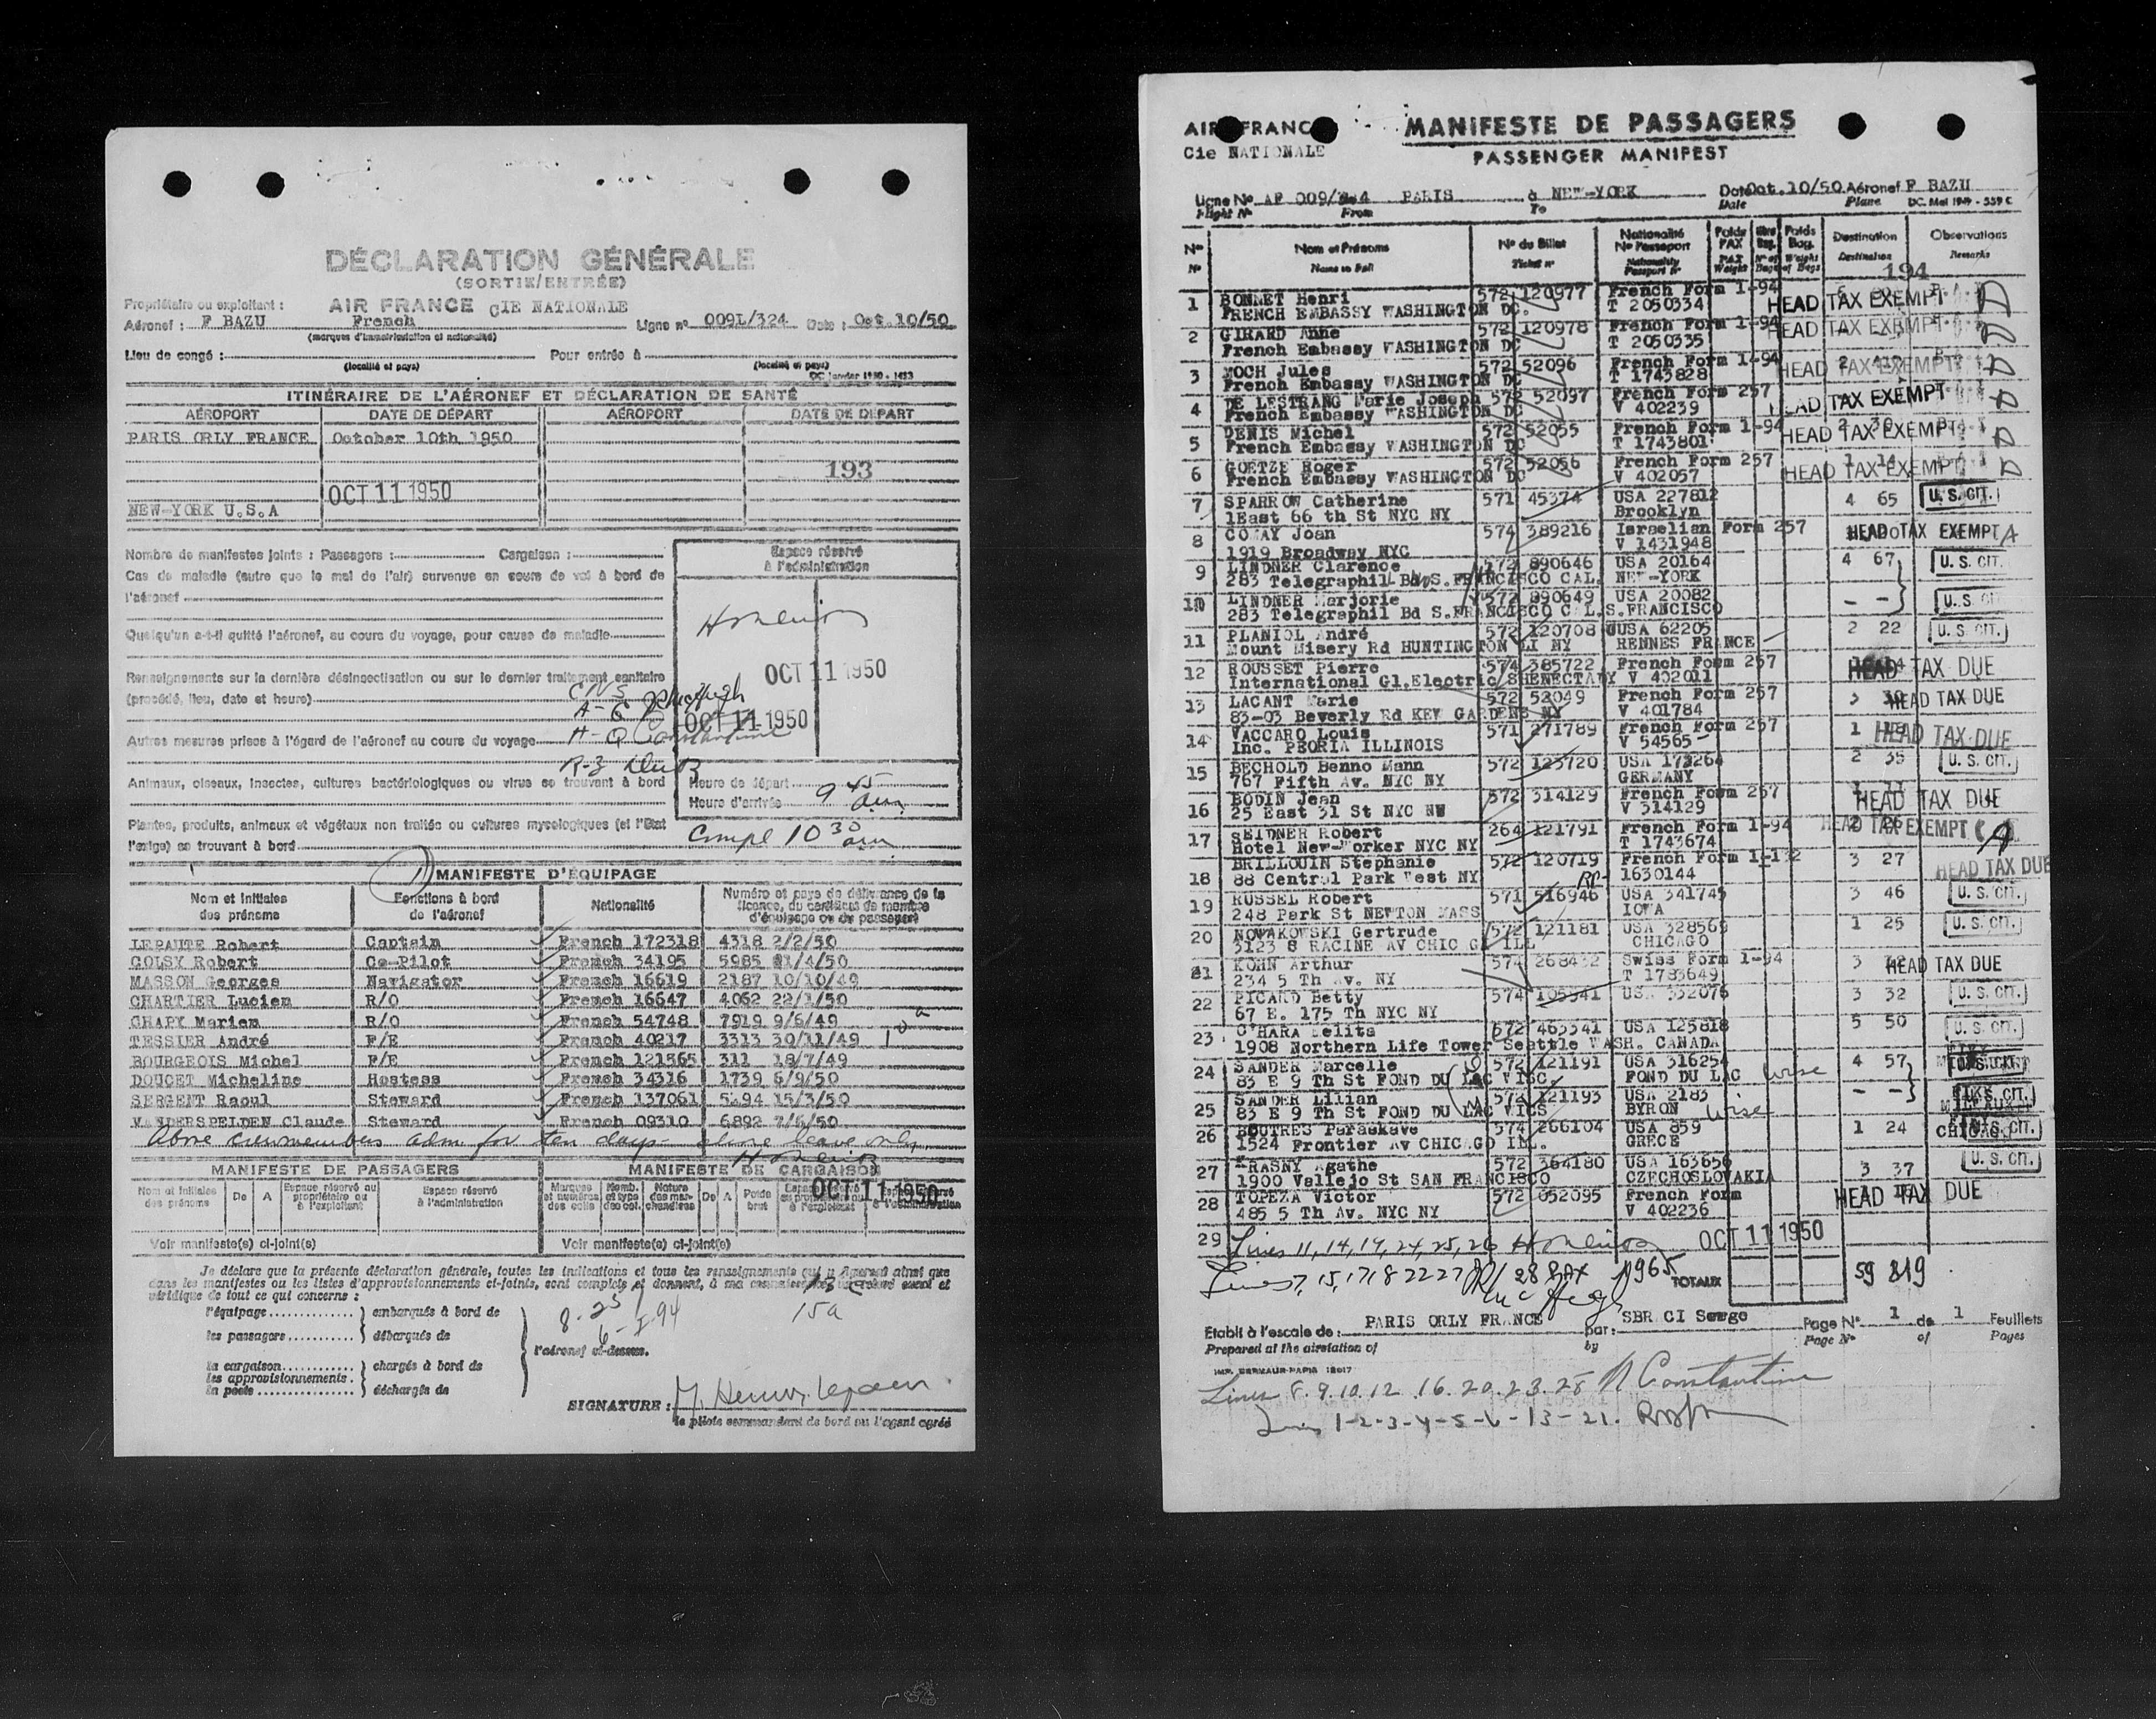 DÉCLARATION GÉNÉRALE
(SORTIE/ENTRÉE)
Propriétaire ou exploitant : AIR FRANCE CIE NATIONALE
Aéronef : F BAZU French Ligne nº 009L/324 Date : Oct.10/50
(marques d'immatriculation et nationalité)
Lieu de congé : Pour entrée à
(localité et pays) (localité et pays)
DC Janvier 1950 - 1433
ITINÉRAIRE DE L'AÉRONEF ET DÉCLARATION DE SANTÉ
AÉROPORT DATE DE DÉPART AÉROPORT DATE DE DÉPART
PARIS ORLY FRANCE October 10th 1950
193
OCT 11 1950
NEW-YORK U.S.A
Nombre de manifestes joints : Passagers : Cargaison :
Espace réservé
à l'administration
Cas de maladie (autre que le mal de l'air) survenue en cours de vol à bord de
l'aéronef
Quelqu'un a-t-il quitté l'aéronef, au cours du voyage, pour cause de maladie
OCT 11 1950
Renseignements sur la dernière désinsectisation ou sur le dernier traitement sanitaire
(procédé, lieu, date et heure)
OCT 11 1950
Autres mesures prises à l'égard de l'aéronef au cours du voyage
Animaux, oiseaux, insectes, cultures bactériologiques ou virus se trouvant à bord
Heure de départ
Heure d'arrivée 9 45 am
Plantes, produits, animaux et végétaux non traités ou cultures mycologiques (si l'Etat
l'exige) se trouvant à bord
Compl 10 30 am
MANIFESTE D'ÉQUIPAGE
Nom et initiales des prénoms Fonctions à bord de l'aéronef Nationalité Numéro et pays de délivrance de la licence, du certificat de membre d'équipage ou du passeport
LEPAUTE Robert Captain French 172318 4318 2/2/50
GOLSY Robert Co-Pilot French 34195 5985 21/4/50
MASSON Georges Navigator French 16619 2187 10/10/49
CHARTIER Lucien R/O French 16647 4062 22/3/50
CHAPY Marien R/O French 54748 7919 9/6/49
TESSIER André F/E French 40217 3313 30/11/49
BOURGEOIS Michel F/E French 121565 311 18/7/49
DOUCET Micheline Hostess French 34316 1739 6/9/50
SERGENT Raoul Steward French 137061 5294 15/3/50
VANDERSPELDEN Claude Steward French 09310 6892 7/6/50
Above crewmembers adm for ten days shore leave only
MANIFESTE DE PASSAGERS MANIFESTE DE CARGAISON
OCT 11 1950
Nom et initiales des prénoms De A Espace réservé au propriétaire ou à l'exploitant Espace réservé à l'administration
Marques et numéros des colis Nomb. et type des col. Nature des marchandises De A Poids brut
Voir manifeste(s) ci-joint(s) Voir manifeste(s) ci-joint(s)
Je déclare que la présente déclaration générale, toutes les indications et tous les renseignements qui y figurent ainsi que
dans les manifestes ou les listes d'approvisionnements ci-joints, sont complets et donnent, à ma connaissance, un relevé exact et
véridique de tout ce qui concerne :
l'équipage embarqués à bord de
les passagers débarqués de
l'aéronef ci-dessus.
la cargaison chargés à bord de
les approvisionnements
la poste déchargés de
15a
SIGNATURE :
le pilote commandant de bord ou l'agent agréé
AIR FRANCE
Cie NATIONALE
MANIFESTE DE PASSAGERS
PASSENGER MANIFEST
Ligne Nº AF 009/324 PARIS à NEW-YORK Date Oct.10/50 Aéronef F BAZU
Flight Nº From To Date Plane DC. Mai 1949 - 559 C
Nº Nom et Prénoms Nº du Billet Nationalité Nº Passeport Poids PAX Poids Bag. Destination Observations
Nº Name in Full Ticket nº Nationality Passport Nº PAX Weight Nº of Bags Weight of Bags Destination Remarks
194
1 BONNET Henri 572 120977 French Form 1-94 HEAD TAX EXEMPT
FRENCH EMBASSY WASHINGTON DC. T 2050334
2 GIRARD Anne 572 120978 French Form 1-94 HEAD TAX EXEMPT
French Embassy WASHINGTON DC T 2050335
3 MOCH Jules 572 52096 French Form 1-94 HEAD TAX EXEMPT
French Embassy WASHINGTON DC T 1743828
4 DE LESTRANG Marie Joseph 572 52097 French Form 257 HEAD TAX EXEMPT
French Embassy WASHINGTON DC V 402239
5 DENIS Michel 572 52055 French Form 1-94 HEAD TAX EXEMPT
French Embassy WASHINGTON DC T 1743801
6 GOETZE Roger 572 52056 French Form 257 HEAD TAX EXEMPT
French Embassy WASHINGTON DC V 402057
7 SPARROW Catherine 571 45374 USA 227812 4 65 U.S. CIT.
1East 66 th St NYC NY Brooklyn
8 COMAY Joan 574 389216 Israelian Form 257 HEAD TAX EXEMPT
1919 Broadway NYC V 1431948
9 LINDNER Clarence 572 890646 USA 20164 4 67 U. S. CIT.
283 Telegraphil Bd S.FRANCISCO CAL. NEW-YORK
10 LINDNER Marjorie 572 890649 USA 20082 - - U. S. CIT.
283 Telegraphil Bd S.FRANCISCO CAL.S.FRANCISCO
11 PLANIOL André 572 120708 USA 62205 2 22 U. S. CIT.
Mount Misery Rd HUNTINGTON LI NY RENNES FRANCE
12 ROUSSET Pierre 574 385722 French Form 257 HEAD TAX DUE
International Gl.Electric SHENECTADY V 402011
13 LACANT Marie 572 52049 French Form 257 3 HEAD TAX DUE
83-03 Beverly Rd KEW GARDENS NY V 401784
14 VACCARO Louis 571 271789 French Form 257 1 HEAD TAX DUE
Inc. PEORIA ILLINOIS V 54565
15 BECHOLD Benno Mann 572 123720 USA 173264 2 35 U. S. CIT.
767 Fifth Av. NYC NY GERMANY
16 BODIN Jean 572 314129 French Form 257 HEAD TAX DUE
25 East 31 St NYC NW V 314129
17 SEIDNER Robert 264 121791 French Form 1-94 HEAD TAX EXEMPT
Hotel New-Yorker NYC NY T 1743674
18 BRILLOUIN Stephanie 572 120719 French Form 1-132 3 27 HEAD TAX DUE
88 Central Park West NY 1630144
19 RUSSEL Robert 571 516946 USA 341745 3 46 U. S. CIT.
248 Park St NEWTON MASS IOWA
20 NOWAKOWSKI Gertrude 572 121181 USA 328569 1 25 U. S. CIT.
3123 S RACINE AV CHICAGO ILL CHICAGO
21 KOHN Arthur 574 268432 Swiss Form 1-94 3 HEAD TAX DUE
234 5 Th Av. NY T 1783649
22 PICARD Betty 574 105941 USA 332076 3 32 U. S. CIT.
67 E. 175 Th NYC NY
23 O'HARA Melita 572 463341 USA 125818 5 50 U. S. CIT.
1908 Northern Life Tower Seattle WASH. CANADA
24 SANDER Marcelle 572 121191 USA 316254 4 57 U.S. CIT.
83 E 9 Th St FOND DU LAC WISC. FOND DU LAC Wisc
25 SANDER Lilian 572 121193 USA 2183 - - U. S. CIT.
83 E 9 Th St FOND DU LAC WICS BYRON Wisc
26 BOUTRES Paraskave 574 266104 USA 859 1 24 CHICAGO U. S. CIT.
1524 Frontier Av CHICAGO ILL. GRECE
27 KRASNY Agathe 572 364180 USA 163656 3 37 U. S. CIT.
1900 Vallejo St SAN FRANCISCO CZECHOSLOVAKIA
28 TOPEZA Victor 572 052095 French Form HEAD TAX DUE
485 5 Th Av. NYC NY V 402236
29 Lines 11, 14, 19, 24, 25, 26 OCT 11 1950
Lines 7, 15, 17, 18 22 27 28 PAX 1965 TOTAUX 59 819
Etabli à l'escale de : PARIS ORLY FRANCE par : Page Nº 1 de 1 Feuillets
Prepared at the airstation of by Page Nº of Pages
Lines 8. 9. 10. 12. 16. 20. 23. 28 N Constantine
Lines 1-2-3-4-5-6-13-21.